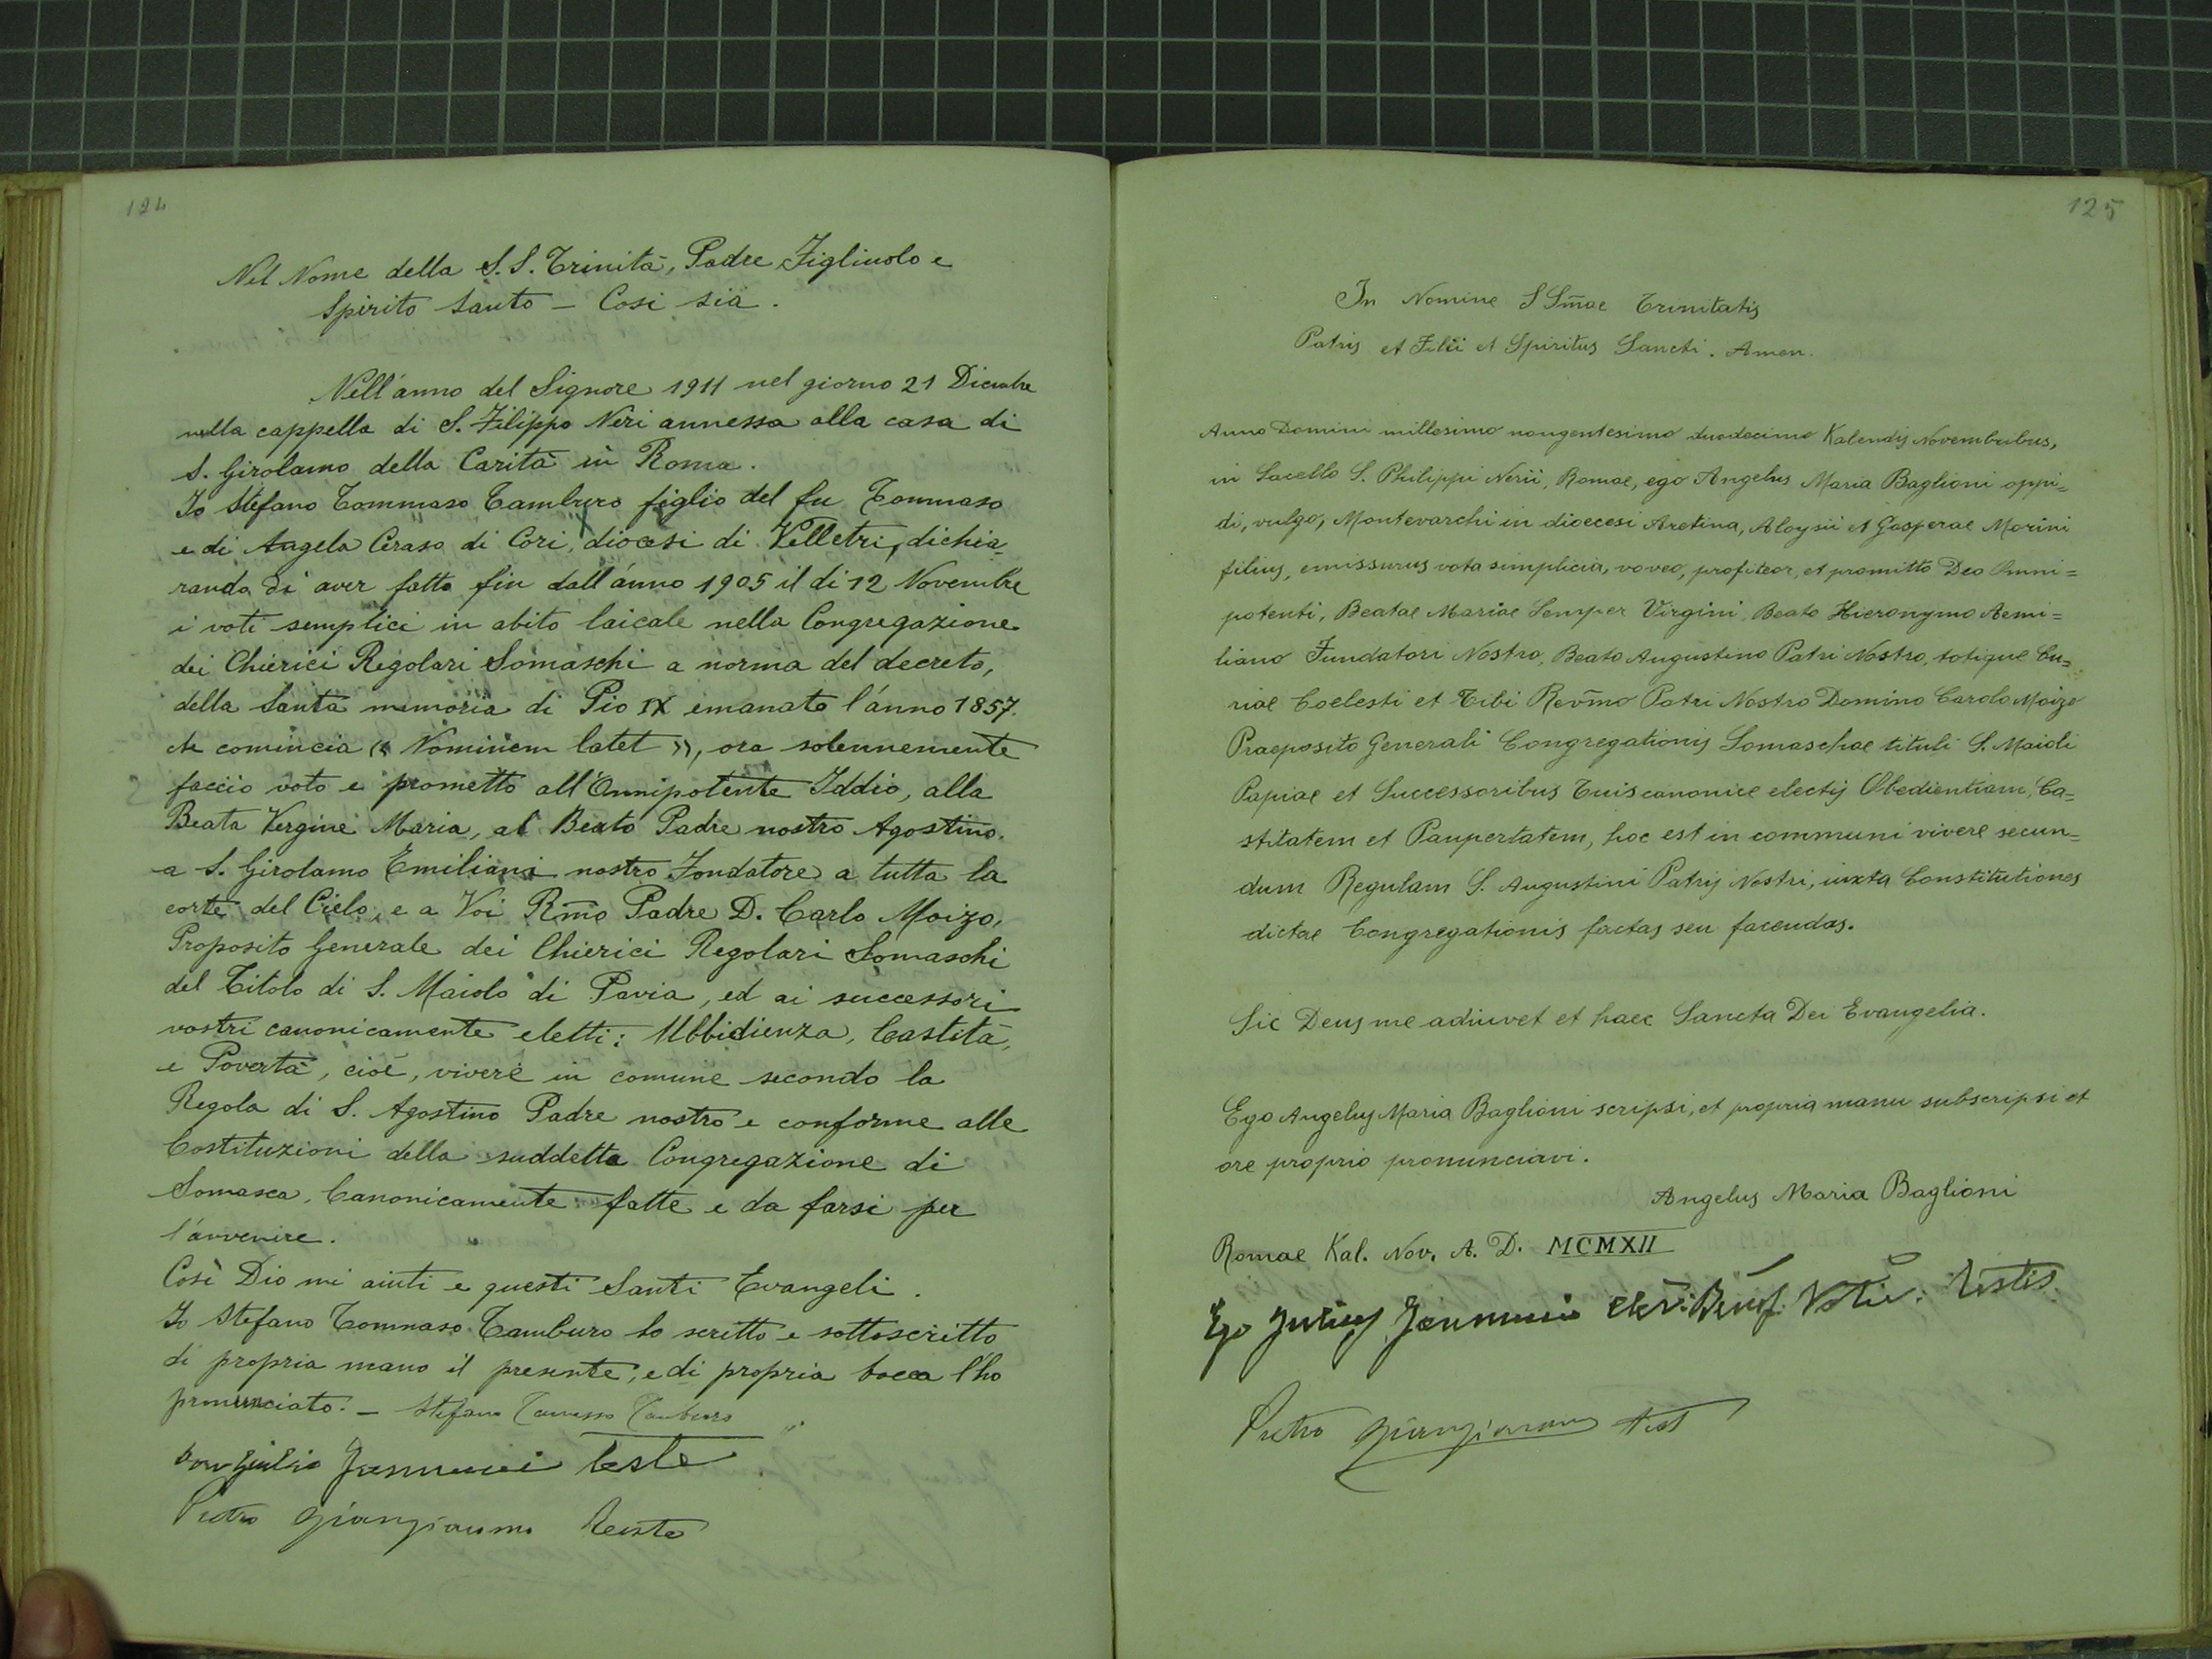 124
Nel Nome della S.S. Trinità, Padre Figliuolo e
Spirito Santo – Così sia.
Nell'anno del Signore 1911 nel giorno 21 Dicembre
nella cappella di S. Filippo Neri annessa alla casa di
S. Girolamo della Carità in Roma.
Io Stefano Tommaso Tamburo figlio del fu Tommaso
e di Angela Ceraso di Cori, diocesi di Velletri, dichia-
rando di aver fatto fin dall'anno 1905 il di 12 Novembre
i voti semplici in abito laicale nella Congregazione
dei Chierici Regolari Somaschi a norma del decreto,
della Santa memoria di Pio IX emanato l'anno 1857.
che comincia « Neminem latet », ora solennemente
faccio voto e prometto all'Onnipotente Iddio, alla
Beata Vergine Maria, al Beato Padre nostro Agostino.
a S. Girolamo Emiliani nostro Fondatore a tutta la
corte del Cielo, e a Voi Rmo Padre D. Carlo Moizo,
Proposito Generale dei Chierici Regolari Somaschi
del Titolo di S. Maiolo di Pavia, ed ai successori
vostri canonicamente eletti: Ubbidienza, Castità,
e Povertà, cioè, vivere in comune secondo la
Regola di S. Agostino Padre nostro e conforme alle
Costituzioni della suddetta Congregazione di
Somasca, Canonicamente fatte e da farsi per
l'avvenire.
Così Dio mi aiuti e questi Santi Evangeli.
Io Stefano Tommaso Tamburo ho scritto e sottoscritto
di propria mano il presente, e di propria bocca l'ho
pronunciato. – Stefano Tommaso Tamburo
Don Giulio teste
Pietro Teste
125
In Nomine SSmae Trinitatis
Patris et Filii et Spiritus Sancti. Amen.
Anno Domini millesimo nongentesimo duodecimo Kalendis Novembribus,
in Sacello S. Philippi Nerii, Romae, ego Angelus Maria Baglioni oppi=
di, vulgo, Montevarchi in dioecesi Aretina, Aloysii et Gasperae Morini
filius, emissurus vota simplicia, voveo, profiteor, et promitto Deo Omni=
potenti, Beatae Mariae Semper Virgini, Beato Hieronymo Aemi=
liano Fundatori Nostro, Beato Augustino Patri Nostro, totique Cu=
riae Coelesti et Tibi Revmo Patri Nostro Domino Carolo Moizo
Praeposito Generali Congregationis Somaschae tituli S. Maioli
Papiae et Successoribus Tuis canonice electis Obedientiam, Ca=
stitatem et Paupertatem, hoc est in communi vivere secun=
dum Regulam S. Augustini Patris Nostri, iuxta Constitutiones
dictae Congregationis factas seu facendas.
Sic Deus me adiuvet et haec Sancta Dei Evangelia.
Ego Angelus Maria Baglioni scripsi, et propria manu subscripsi et
ore proprio pronunciavi.
Angelus Maria Baglioni
Romae Kal. Nov. A. D. MCMXII
Ego Julius testis.
Pietro